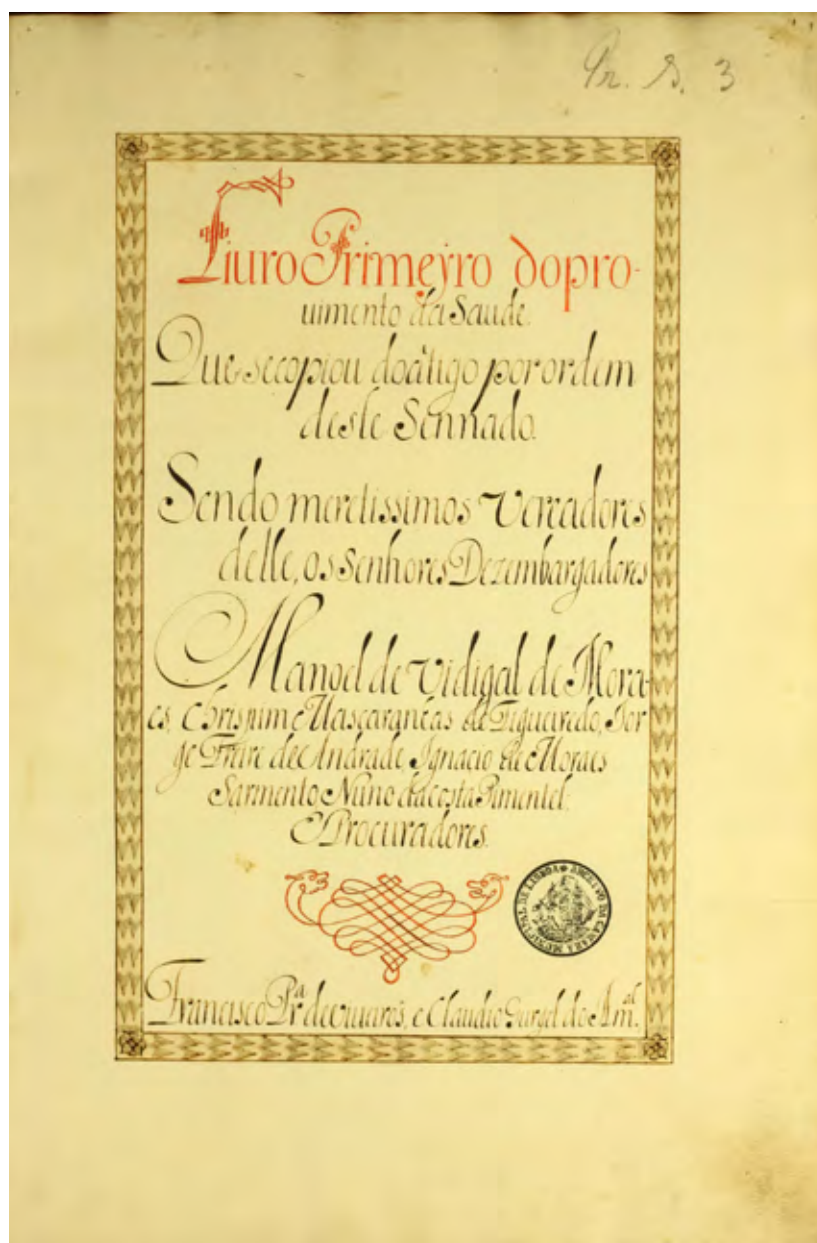 Pr. S. 3
Liuro Primeyro dopro-
uimento da Saude.
Que secopiou doãtigo por ordem
deste Sennado.
Sendo meretissimos Vereadores
delle, os Senhores Dezembargadores
Manoel de Vidigal de Mora-
es, Chrispim Mascaranhas de Figueiredo, Jor
ge Freire de Andrade, Ignacio de Moraes
Sarmento, Nuno da costa Pimentel.
E Procuradores.
ARCHIVO DA CAMARA MUNICIPAL DE LISBOA
Francisco Prª. de viuares, e Claudio Gurgel do Amal.